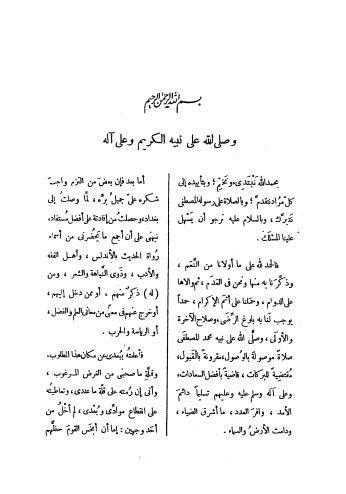 بسم الله الرحمن الرحيم
وصلى الله على نبيه الكريم وعلى آله
بحمد الله نَبْتَدِئ ونختِم؛ وبتأييده إلى
كل مراد نتقدم؛ وبالصلاة على رسوله المصطفى
نتبرك، وبالسلام عليه نرجو أن يسهل
علينا المسلك.
فالحمد لله على ما أولانا من النعم،
وذكرنا به منها ونحن فى القدم، ثم والاها
على الدوام، وحملنا على أتم الإكرام، حمداً
يوجب لنا به بلوغ الرضى، وصلاح الآخرة
والأولى، وصلى الله على نبيه محمد المصطفى
صلاة موصولة بالوُصول، مقرونة بالقبول،
مقتضية للبركات، قاضية بأفضل السعادات،
وعلى آله وسلم عليه وعليهم تسليماً دائم
الأمد، وافر العدد، ما أشرق الضياء،
ودامت الأرضُ والسماء.
أما بعد فإن بعض من التزم واجب
شكره على جميل بره، لما وصلتُ إلى
بغداد، وحصلت من إفادته على أفضل مستفاد،
نبهنى على أن أجمع ما يحضرنى من أسماء
رواة الحديث بالأندلس، وأهل الفقه
والأدب، وذوى النباهة والشعر، ومن
(له) ذكرٌ منهم، أو ممن دخل إليهم،
أو خرج عنهم فى معنى من معانى العلم والفضل،
أو الرياسة والحرب.
فأعلمتُه ببُعدى عن مكان هذا المطلوب،
وقلة ما صحبنى من الغرض المرغوب،
وأنى إن رمته على قلة ما عندى، وتعاطيته
على انقطاع موادّى وبُعدى، لم أخلُ من
أحد وجهين: إما أن أبخس القوم حظهم